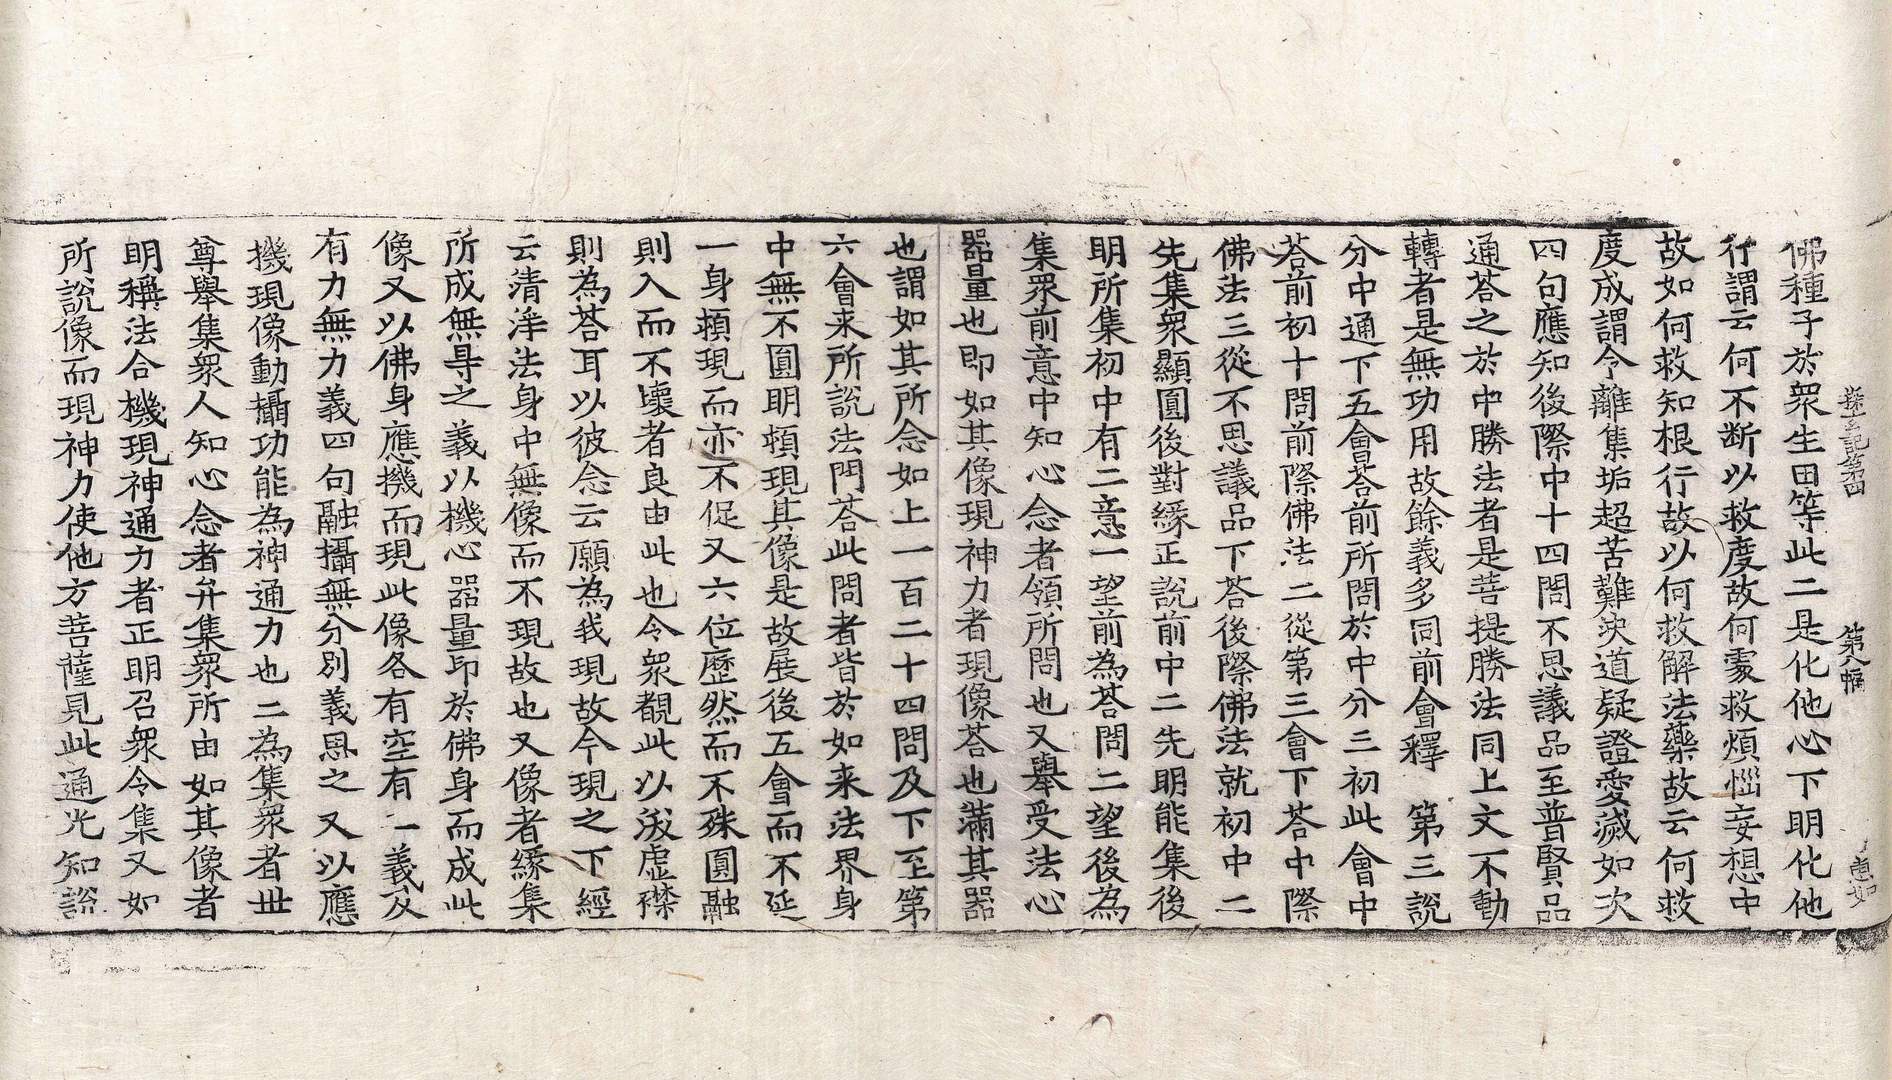 探玄記第四 第八幅 惠如
佛種子於衆生田等此二是化他心下明化他
行謂云何不断以救度故何䖏救煩惱妄想中
故如何救知根行故以何救解法藥故云何救
度成謂令離集垢超苦難決道疑證愛滅如次
四句應知後際中十四問不思議品至普賢品
通荅之於中勝法者是菩提勝法同上文不動
轉者是無功用故餘義多同前會釋　第三說
分中通下五會荅前所問於中分三初此會中
荅前初十問前際佛法二從第三會下荅中際
佛法三從不思議品下荅後際佛法就初中二
先集衆顯圓後對縁正說前中二先明能集後
明所集初中有二意一望前為荅問二望後為
集衆前意中知心念者領所問也又舉受法心
器量也即如其像現神力者現像荅也滿其器
也謂如其所念如上一百二十四問及下至第
六會来所說法門荅此問者皆於如来法界身
中無不圓明頓現其像是故展後五會而不延
一身頓現而亦不促又六位歷然而不殊圓融
則入而不壊者良由此也令衆覩此以滌虛襟
則為荅耳以彼念云願為我現故今現之下經
云清淨法身中無像而不現故也又像者縁集
所成無㝵之義以機心器量印於佛身而成此
像又以佛身應機而現此像各有空有一義及
有力無力義四句融攝無分別義思之又以應
機現像動攝功能為神通力也二為集衆者世
尊舉集衆人知心念者弁集衆所由如其像者
明稱法合機現神通力者正明召衆令集又如
所說像而現神力使他方菩薩見此通光知說